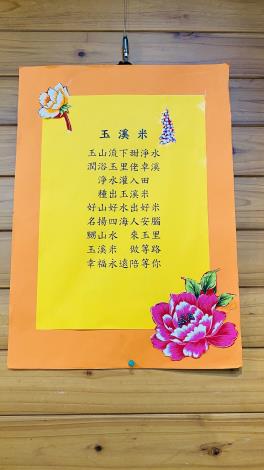 玉溪米
玉山流下甜淨水
潤浴玉里佬卓溪
淨水灌入田
種出玉溪米
好山好水出好米
名揚四海人安腦
嬲山水　來玉里
玉溪米　做等路
幸福永遠陪等你